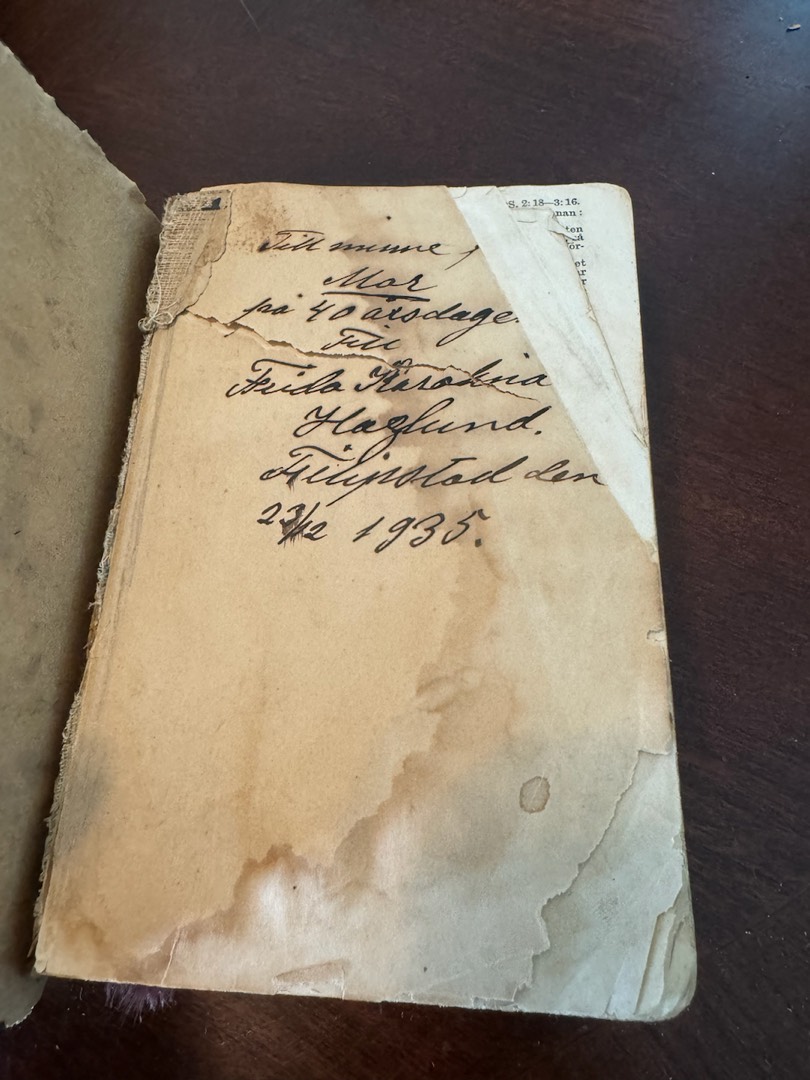 Till minne
Mor
på 40 årsdage
Till
Frida Karolina
Haglund.
Filipstad den
23/12 1935.
S. 2:18—3:16.
nan: